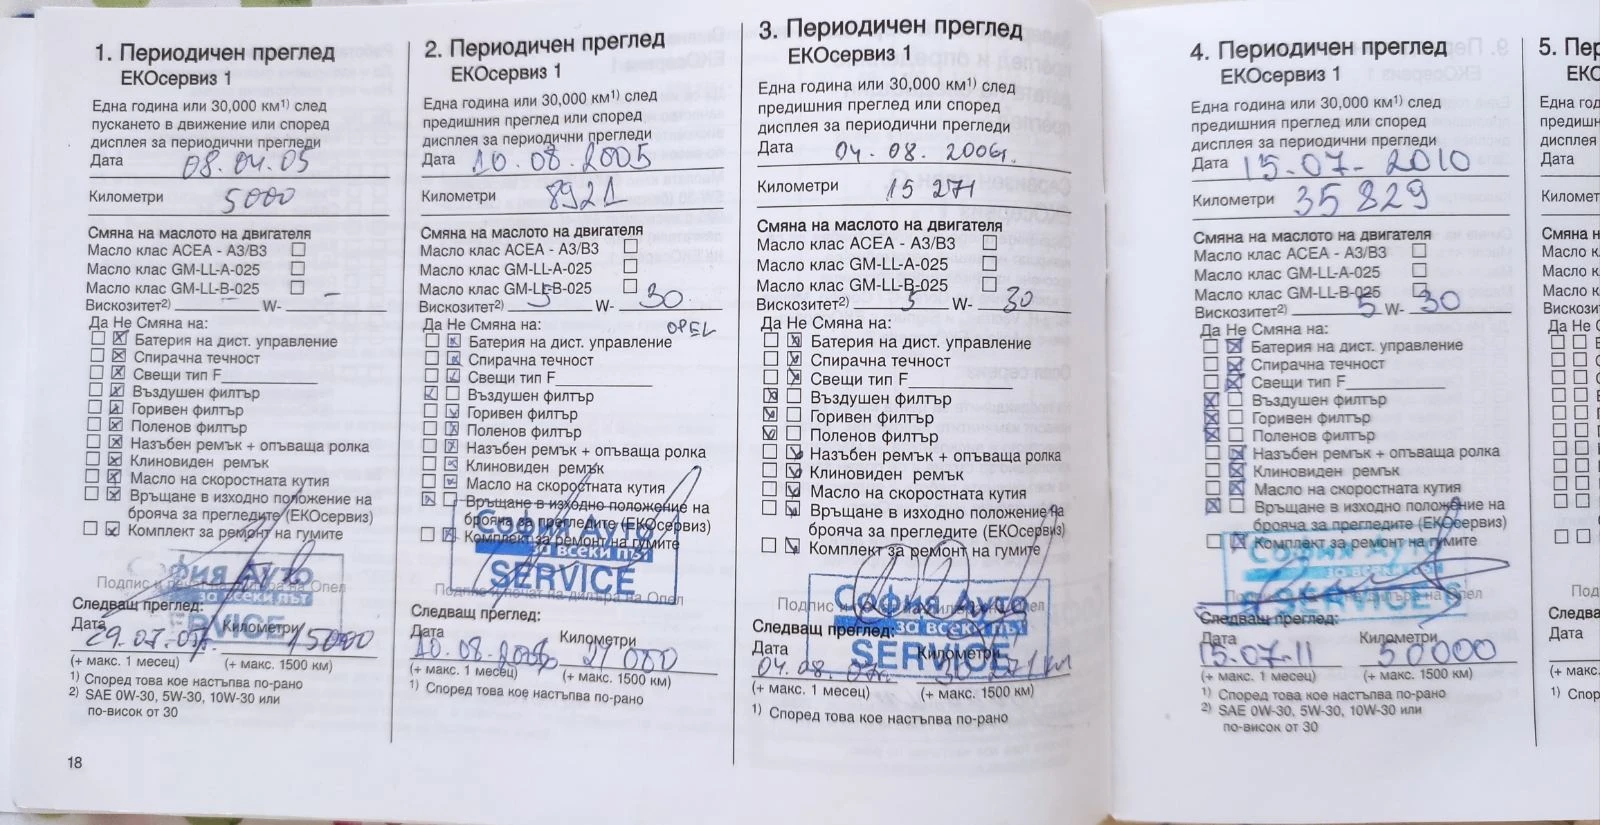 1. Периодичен преглед
ЕКОсервиз 1
Една година или 30,000 км¹⁾ след
пускането в движение или според
дисплея за периодични прегледи
Дата 08.04.05
Километри 5000
Смяна на маслото на двигателя
Масло клас ACEA - A3/B3
Масло клас GM-LL-A-025
Масло клас GM-LL-B-025
Вискозитет²⁾ - W- -
Да Не Смяна на:
Батерия на дист. управление
Спирачна течност
Свещи тип F
Въздушен филтър
Горивен филтър
Поленов филтър
Назъбен ремък + опъваща ролка
Клиновиден ремък
Масло на скоростната кутия
Връщане в изходно положение на
брояча за прегледите (ЕКОсервиз)
Комплект за ремонт на гумите
София Ауто
за всеки път
SERVICE
Подпис и печат на дилъра на Опел
Следващ преглед:
Дата Километри
15000
(+ макс. 1 месец) (+ макс. 1500 км)
¹⁾ Според това кое настъпва по-рано
²⁾ SAE 0W-30, 5W-30, 10W-30 или
по-висок от 30
18
2. Периодичен преглед
ЕКОсервиз 1
Една година или 30,000 км¹⁾ след
предишния преглед или според
дисплея за периодични прегледи
Дата 10.08.2005
Километри 8921
Смяна на маслото на двигателя
Масло клас ACEA - A3/B3
Масло клас GM-LL-A-025
Масло клас GM-LL-B-025
Вискозитет²⁾ 5 W- 30
OPEL
Да Не Смяна на:
Батерия на дист. управление
Спирачна течност
Свещи тип F
Въздушен филтър
Горивен филтър
Поленов филтър
Назъбен ремък + опъваща ролка
Клиновиден ремък
Масло на скоростната кутия
Връщане в изходно положение на
брояча за прегледите (ЕКОсервиз)
Комплект за ремонт на гумите
София Ауто
за всеки път
SERVICE
Подпис и печат на дилъра на Опел
Следващ преглед:
Дата Километри
10.08.2006
(+ макс. 1 месец) (+ макс. 1500 км)
¹⁾ Според това кое настъпва по-рано
3. Периодичен преглед
ЕКОсервиз 1
Една година или 30,000 км¹⁾ след
предишния преглед или според
дисплея за периодични прегледи
Дата 04.08.2006г.
Километри 15271
Смяна на маслото на двигателя
Масло клас ACEA - A3/B3
Масло клас GM-LL-A-025
Масло клас GM-LL-B-025
Вискозитет²⁾ 5 W- 30
Да Не Смяна на:
Батерия на дист. управление
Спирачна течност
Свещи тип F
Въздушен филтър
Горивен филтър
Поленов филтър
Назъбен ремък + опъваща ролка
Клиновиден ремък
Масло на скоростната кутия
Връщане в изходно положение на
брояча за прегледите (ЕКОсервиз)
Комплект за ремонт на гумите
София Ауто
за всеки път
SERVICE
Подпис и печат на дилъра на Опел
Следващ преглед:
Дата Километри
04.08.07г. 30271км
(+ макс. 1 месец) (+ макс. 1500 км)
¹⁾ Според това кое настъпва по-рано
4. Периодичен преглед
ЕКОсервиз 1
Една година или 30,000 км¹⁾ след
предишния преглед или според
дисплея за периодични прегледи
Дата 15.07.2010
Километри 35829
Смяна на маслото на двигателя
Масло клас ACEA - A3/B3
Масло клас GM-LL-A-025
Масло клас GM-LL-B-025
Вискозитет²⁾ 5 W- 30
Да Не Смяна на:
Батерия на дист. управление
Спирачна течност
Свещи тип F
Въздушен филтър
Горивен филтър
Поленов филтър
Назъбен ремък + опъваща ролка
Клиновиден ремък
Масло на скоростната кутия
Връщане в изходно положение на
брояча за прегледите (ЕКОсервиз)
Комплект за ремонт на гумите
София Ауто
за всеки път
SERVICE
Подпис и печат на дилъра на Опел
Следващ преглед:
Дата Километри
15.07-11 50000
(+ макс. 1 месец) (+ макс. 1500 км)
¹⁾ Според това кое настъпва по-рано
²⁾ SAE 0W-30, 5W-30, 10W-30 или
по-висок от 30
5. Пер
ЕКО
Една год
предишн
дисплея
Дата
Километ
Смяна н
Масло к
Масло к
Масло к
Вискози
Да Не С
Следва
Дата
(+ макс.
¹⁾ Спор